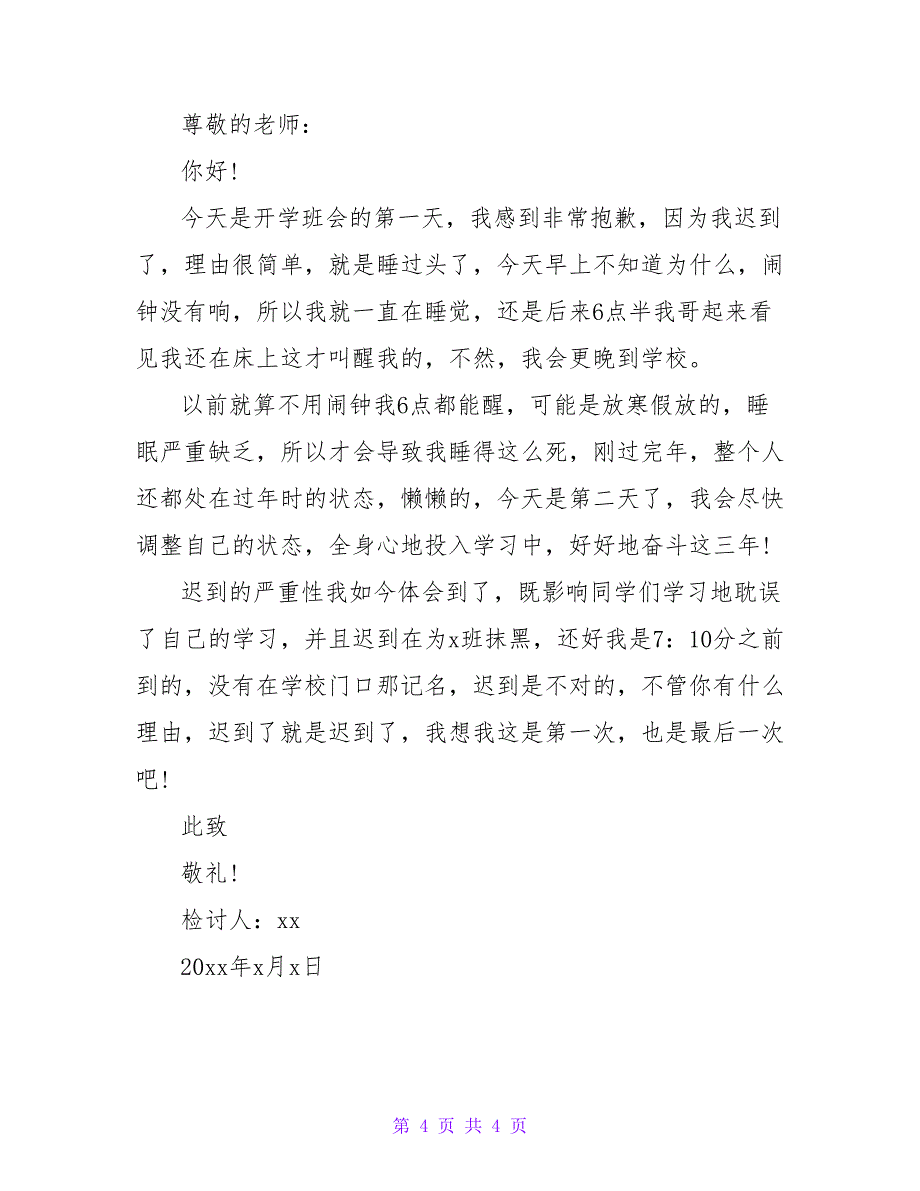 尊敬的老师：
你好!
今天是开学班会的第一天，我感到非常抱歉，因为我迟到
了，理由很简单，就是睡过头了，今天早上不知道为什么，闹
钟没有响，所以我就一直在睡觉，还是后来6点半我哥起来看
见我还在床上这才叫醒我的，不然，我会更晚到学校。
以前就算不用闹钟我6点都能醒，可能是放寒假放的，睡
眠严重缺乏，所以才会导致我睡得这么死，刚过完年，整个人
还都处在过年时的状态，懒懒的，今天是第二天了，我会尽快
调整自己的状态，全身心地投入学习中，好好地奋斗这三年!
迟到的严重性我如今体会到了，既影响同学们学习地耽误
了自己的学习，并且迟到在为x班抹黑，还好我是7：10分之前
到的，没有在学校门口那记名，迟到是不对的，不管你有什么
理由，迟到了就是迟到了，我想我这是第一次，也是最后一次
吧!
此致
敬礼!
检讨人：xx
20xx年x月x日
第 4 页 共 4 页